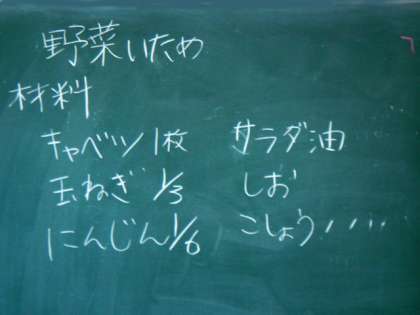 野菜いため
材料
キャベツ1枚 サラダ油
玉ねぎ 1/3 しお
にんじん1/6 こしょう・・・・